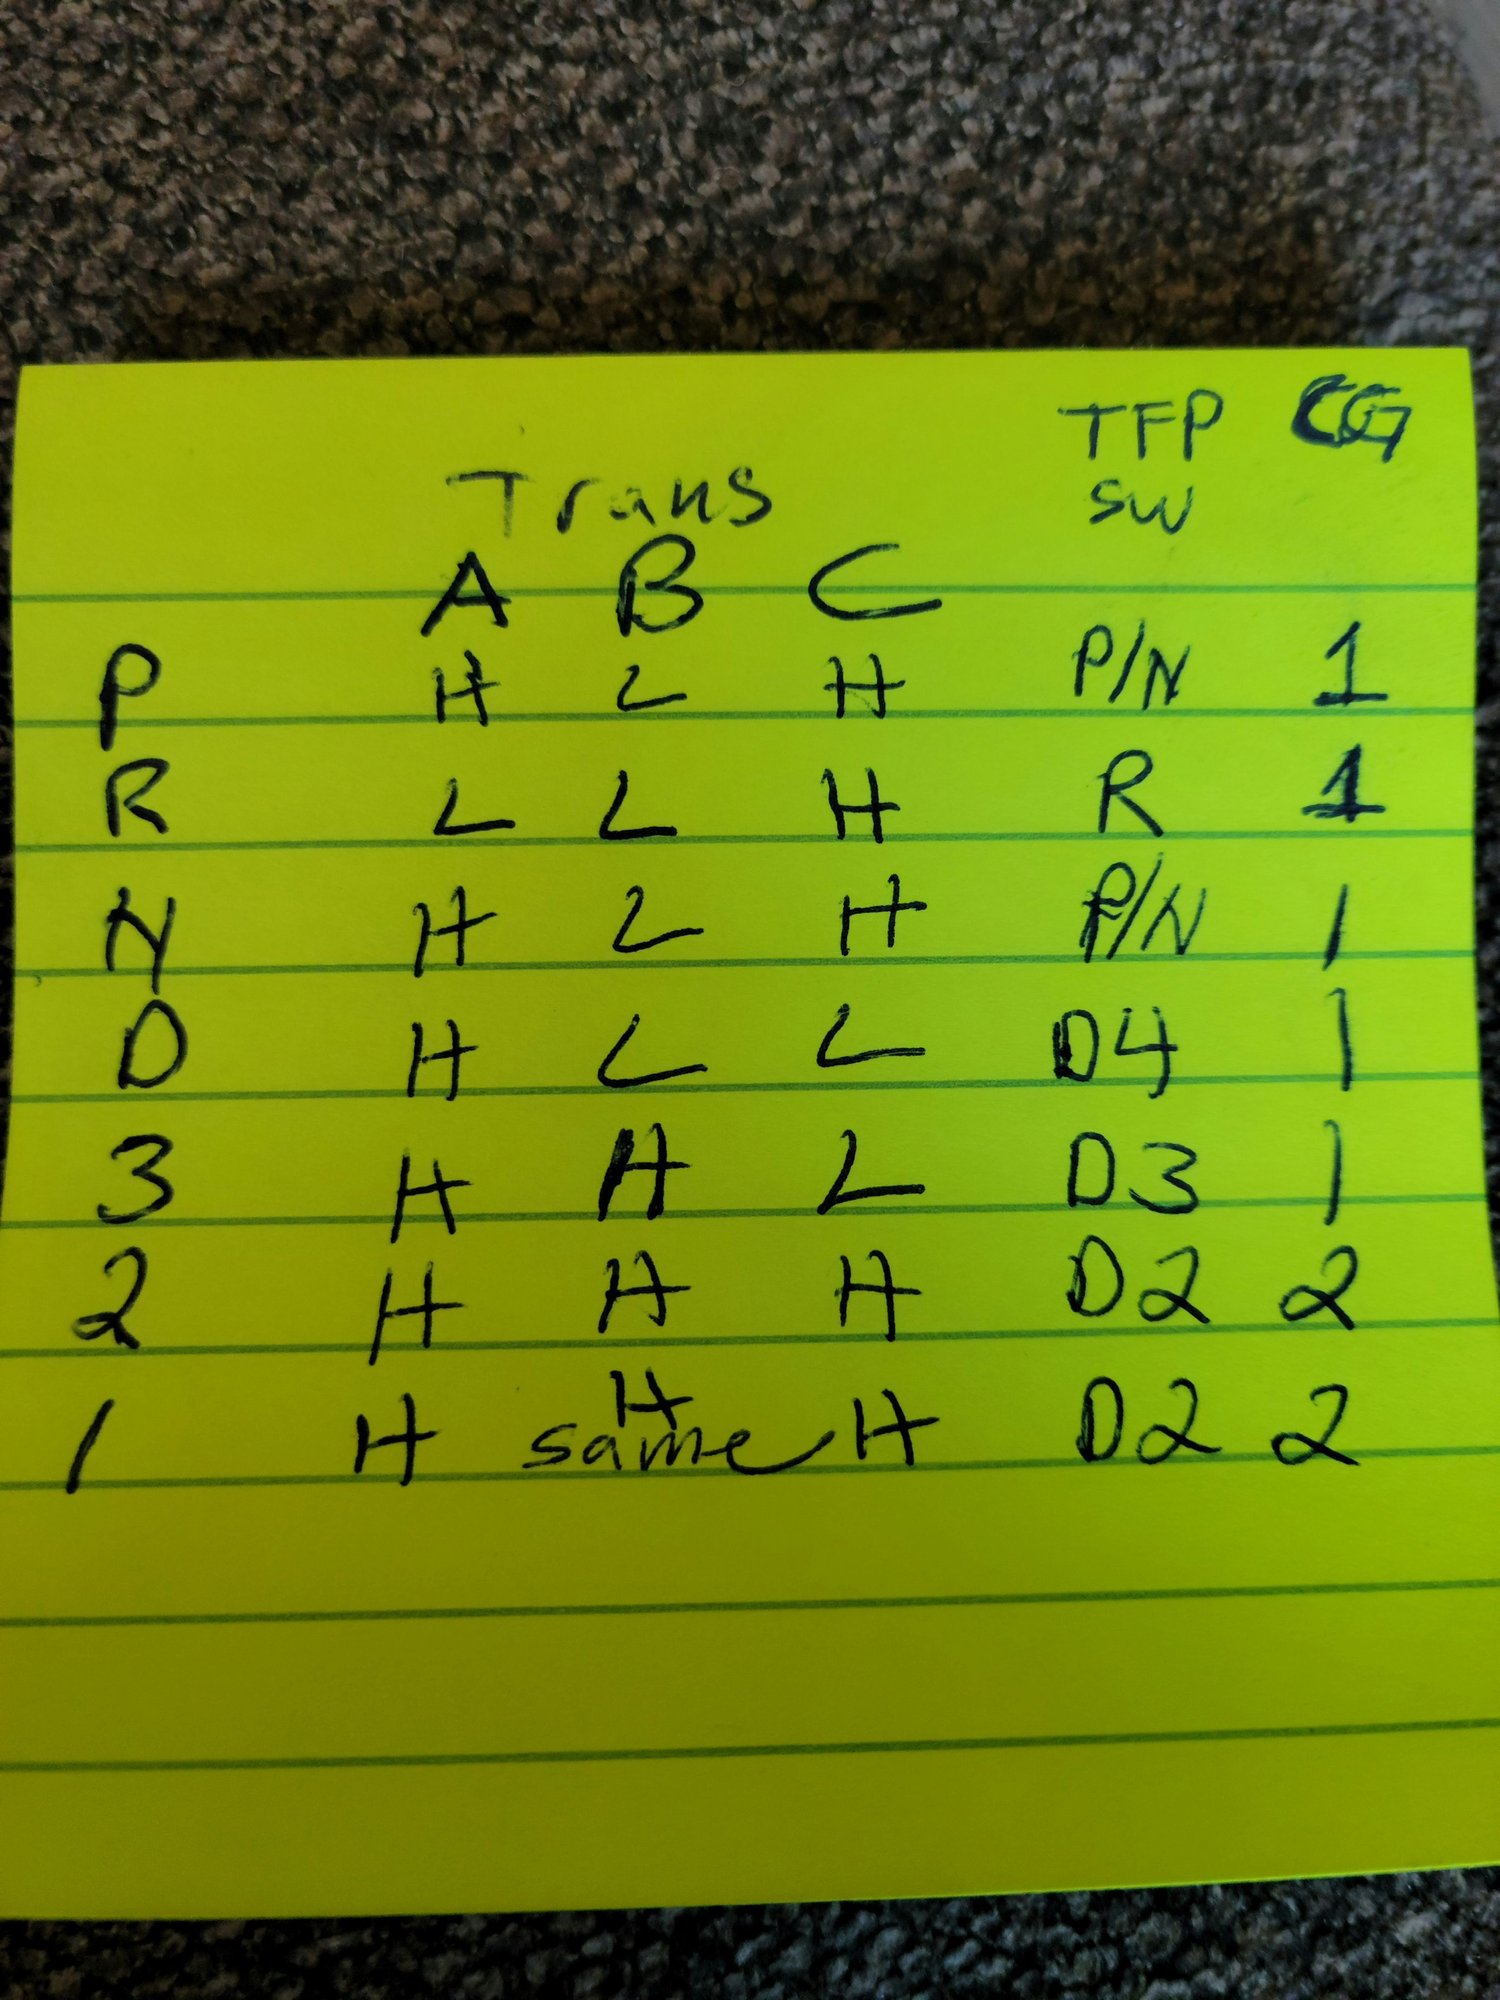 TFP CG
Trans SW
A B C
P H L H P/N 1
R L L H R 1
N H L H P/N 1
D H L L D4 1
3 H H L D3 1
2 H H H D2 2
1 H H same H D2 2